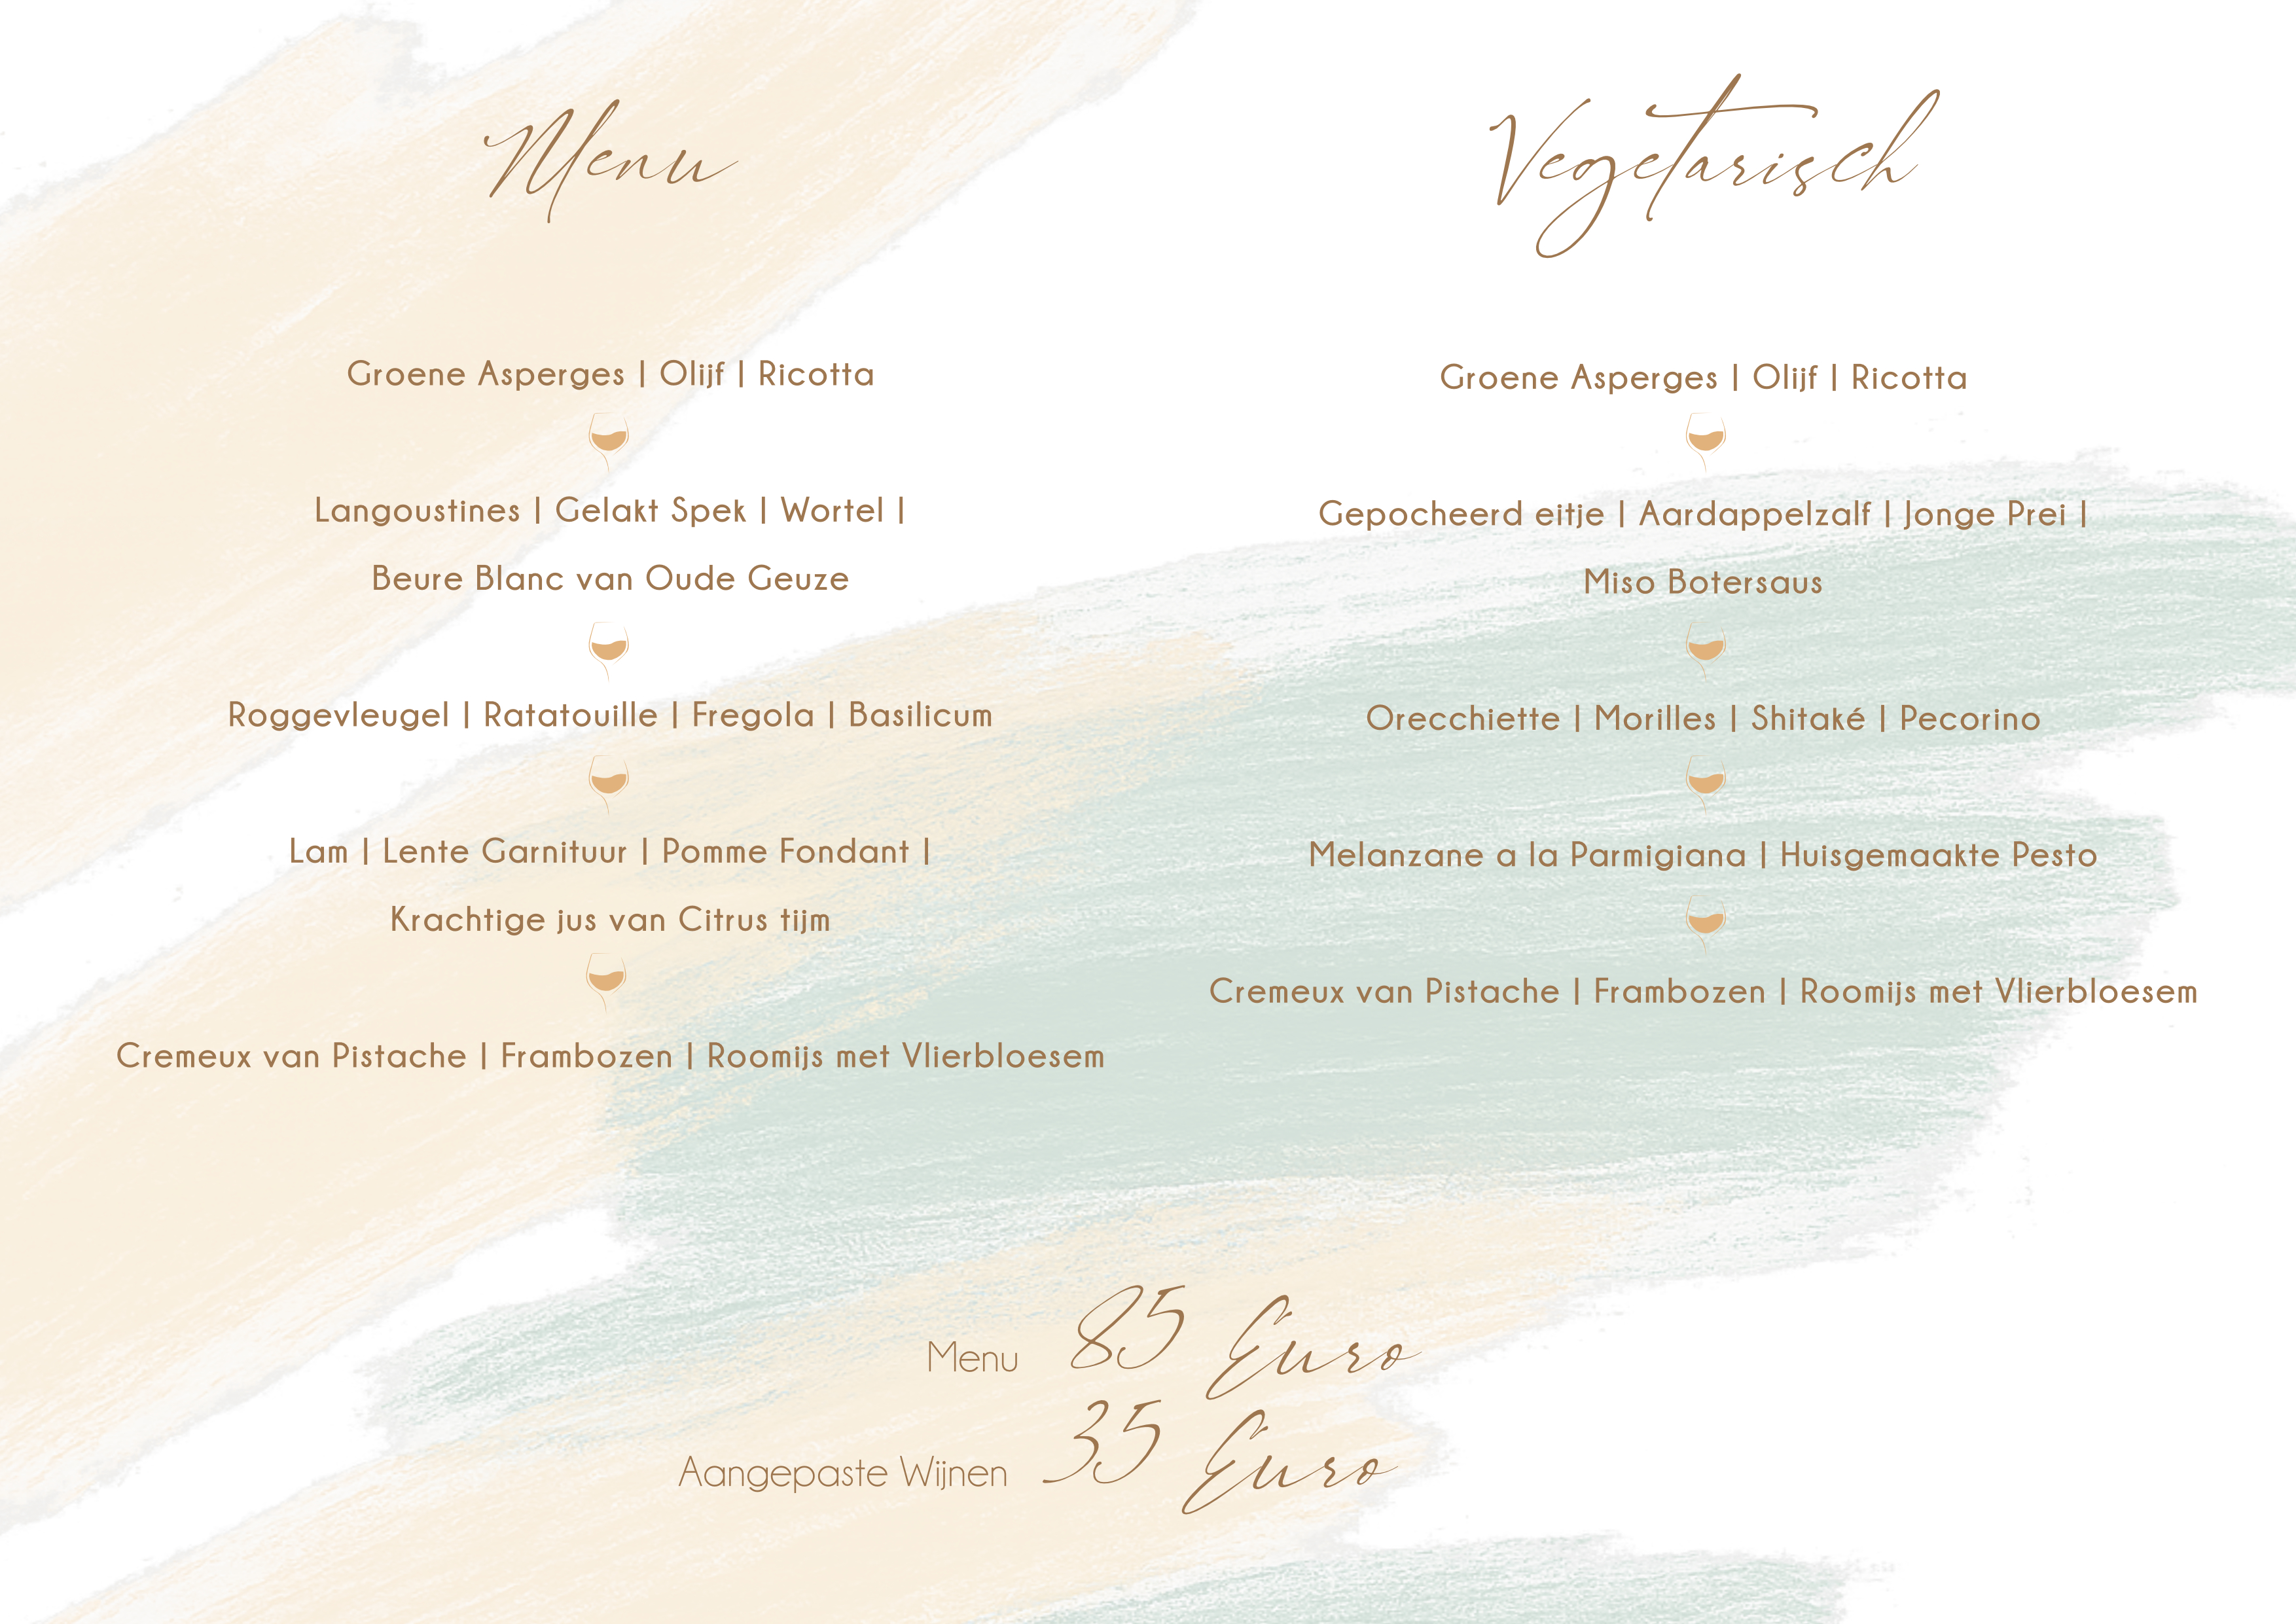 Menu
Groene Asperges | Olijf | Ricotta
Langoustines | Gelakt Spek | Wortel |
Beure Blanc van Oude Geuze
Roggevleugel | Ratatouille | Fregola | Basilicum
Lam | Lente Garnituur | Pomme Fondant |
Krachtige jus van Citrus tijm
Cremeux van Pistache | Frambozen | Roomijs met Vlierbloesem
Vegetarisch
Groene Asperges | Olijf | Ricotta
Gepocheerd eitje | Aardappelzalf | Jonge Prei |
Miso Botersaus
Orecchiette | Morilles | Shitaké | Pecorino
Melanzane a la Parmigiana | Huisgemaakte Pesto
Cremeux van Pistache | Frambozen | Roomijs met Vlierbloesem
Menu 85 Euro
Aangepaste Wijnen 35 Euro